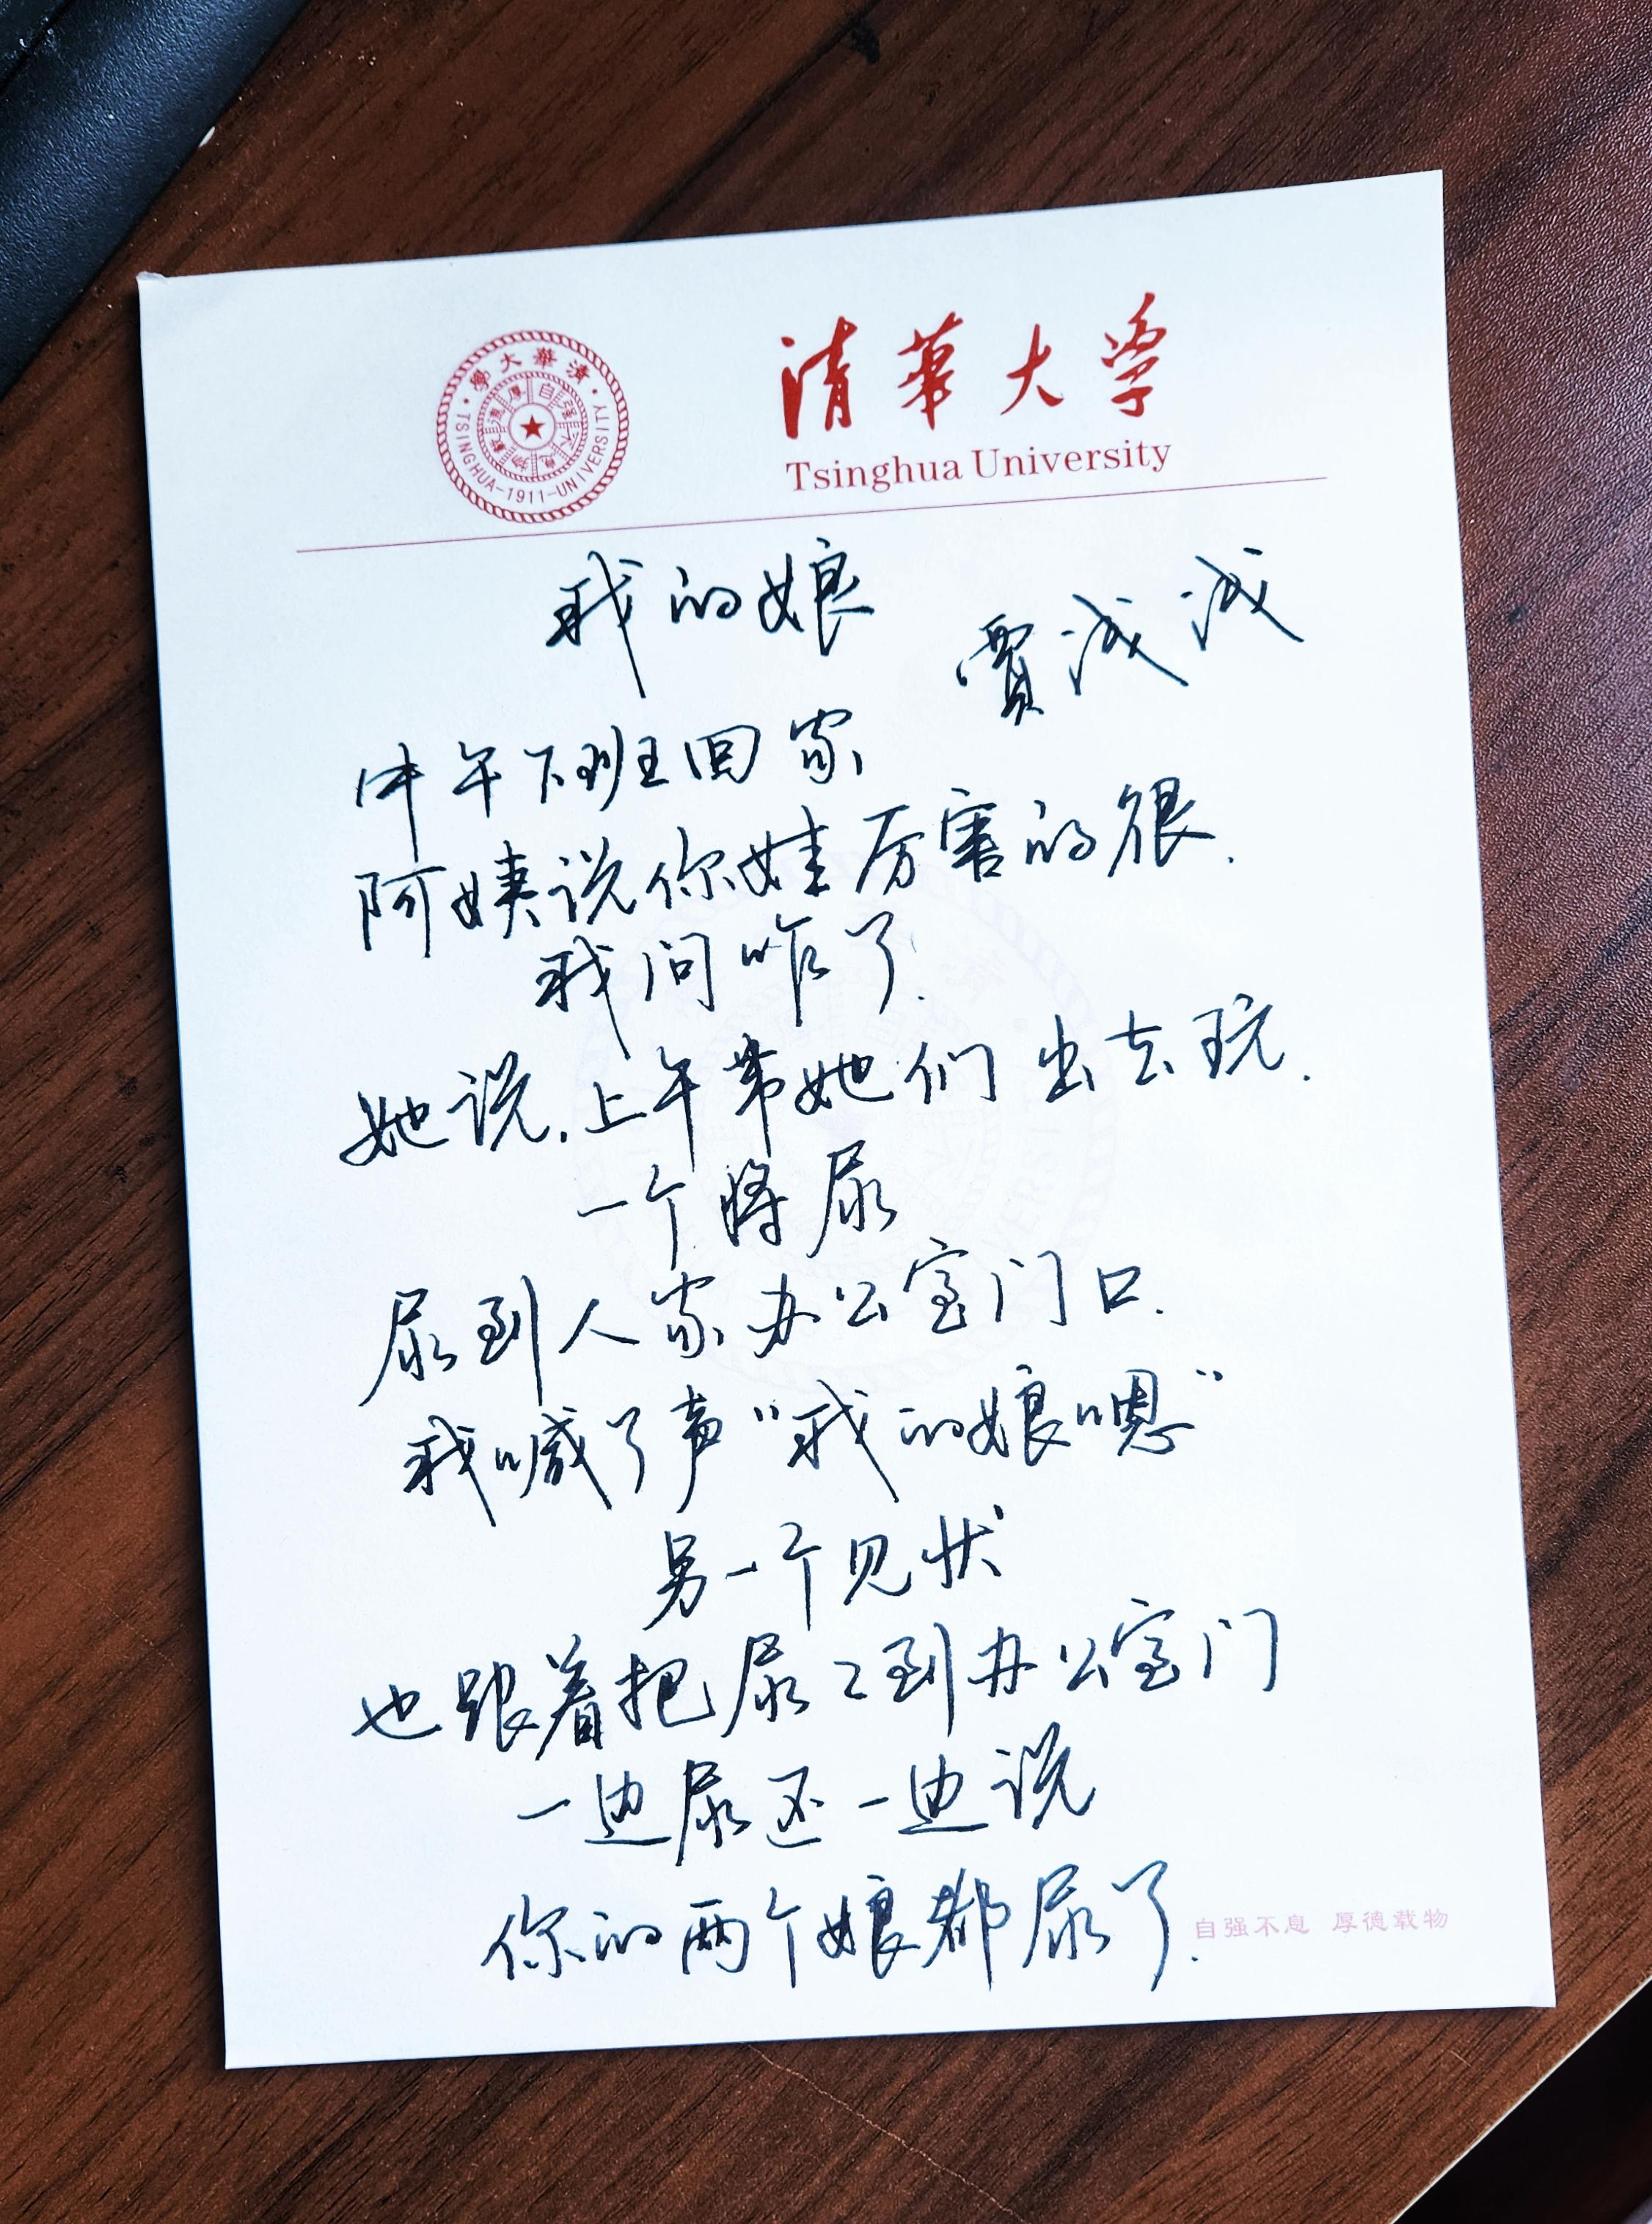 清華大学
Tsinghua University
清華大學
TSINGHUA-1911-UNIVERSITY
自强不息 厚德載物
我的娘
贾浅浅
中午下班回家
阿姨说你娃厉害的很.
我问咋了.
她说.上午带她们出去玩.
一个将尿
尿到人家办公室门口.
我喊了声“我的娘嗯”
另一个见状
也跟着把尿尿到办公室门
一边尿还一边说
你的两个娘都尿了.
自强不息 厚德载物